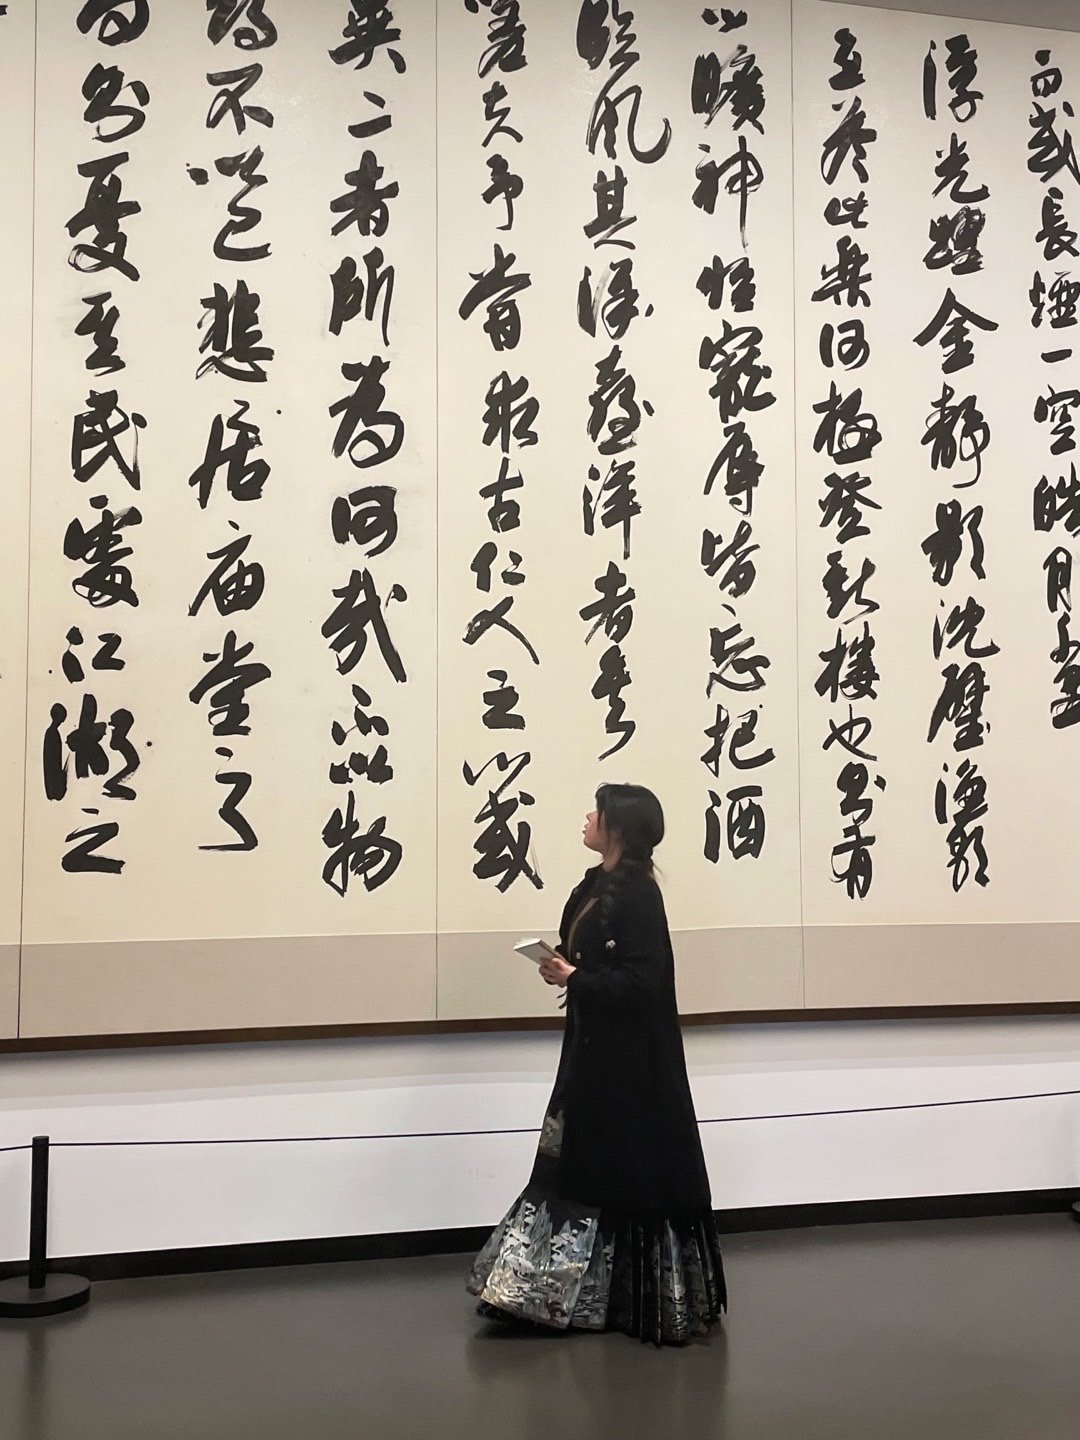 而或長煙一空皓月千里
浮光躍金靜影沈璧漁歌
互答此樂何極登斯樓也則有
心曠神怡寵辱皆忘把酒
臨風其洋喜洋者矣
嗟夫予嘗求古仁人之心或
異二者所為何哉不以物
不以己悲居廟堂之
則憂其民處江湖之